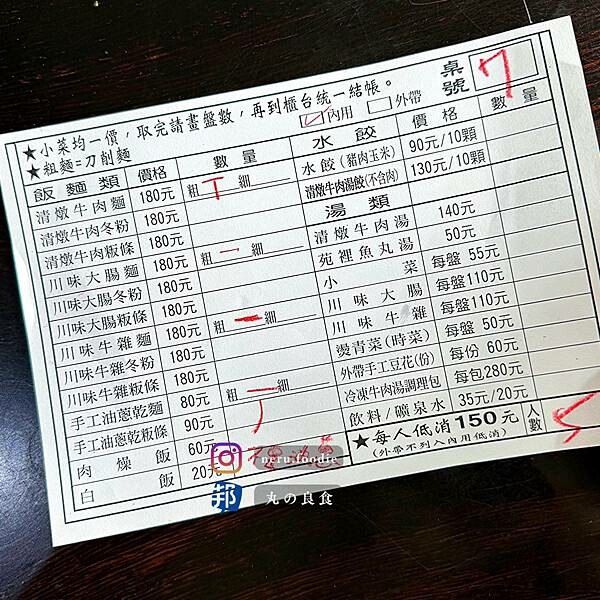 ★小菜均一價，取完請畫盤數，再到櫃台統一結帳。
★粗麵=刀削麵
內用 外帶
桌號 7
飯麵類 價格 數量
清燉牛肉麵 180元 粗 細
清燉牛肉冬粉 180元
清燉牛肉粄條 180元
川味大腸麵 180元 粗 一 細
川味大腸冬粉 180元
川味大腸粄條 180元
川味牛雜麵 180元 粗 一 細
川味牛雜冬粉 180元
川味牛雜粄條 180元
手工油蔥乾麵 80元 粗 一 細
手工油蔥乾粄條 90元
肉燥飯 60元
白飯 20元
水餃 價格 數量
水餃(豬肉玉米) 90元/10顆
清燉牛肉湯餃(不含肉) 130元/10顆
湯類
清燉牛肉湯 140元
苑裡魚丸湯 50元
小菜 每盤 55元
川味大腸 每盤110元
川味牛雜 每盤110元
燙青菜(時菜) 每盤 50元
外帶手工豆花(份) 每份 60元
冷凍牛肉湯調理包 每包280元
飲料/礦泉水 35元/20元
★每人低消150元
(外帶不列入內用低消)
人數 5
neru.foodie
邦 丸の良食